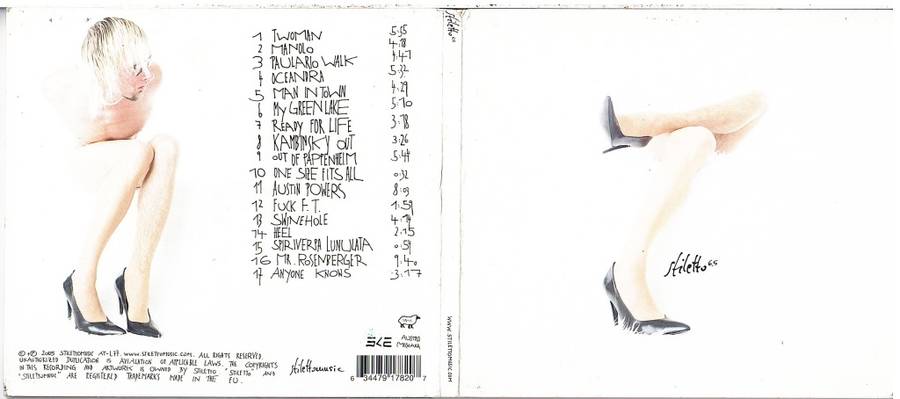 1 TWOMAN 5:35
2 MANOLO 4:18
3 PAULARIO WALK 4:47
4 OCEANDRA 5:32
5 MAN IN TOWN 4:29
6 MY GREEN LAKE 5:10
7 READY FOR LIFE 3:18
8 KAMBINSKY OUT 3:26
9 OUT OF PAPPENHEIM 5:44
10 ONE SIZE FITS ALL 0:32
11 AUSTIN POWERS 8:03
12 FUCK F.T. 1:59
13 SWINEHOLE
14 HEEL 2:15
15 LUNULATA 0:59
16 MR. ROSENBERGER 9:40
17 ANYONE KNOWS 3:17
© ℗ 2005 STILETTOMUSIC AT-L77. WWW.STILETTOMUSIC.COM. ALL RIGHTS RESERVED.
UNAUTHORIZED DUPLICATION IS A VIOLATION OF APPLICABLE LAWS. THE COPYRIGHTS
IN THIS RECORDING AND ARTWORK IS OWNED BY STILETTO. "STILETTO" AND
"STILETTOMUSIC" ARE REGISTERED TRADEMARKS MADE IN THE EU.
stilettomusic
SKE
AUSTRO
MECHANA
6 34479 17820 7
stiletto
WWW.STILETTOMUSIC.COM
stiletto